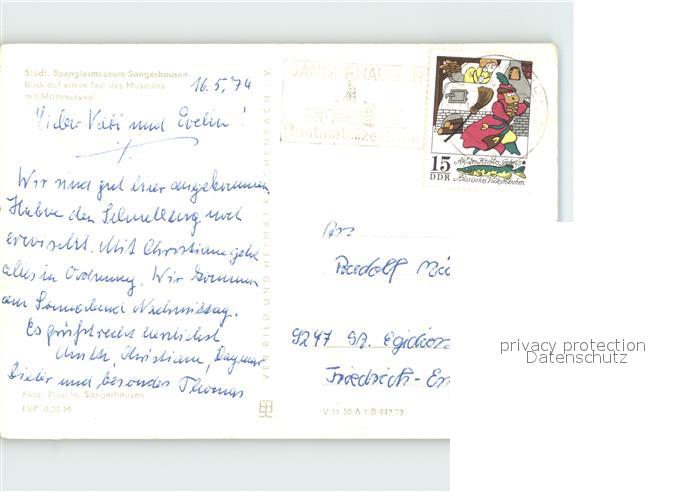 Städt. Spenglermuseum Sangerhausen
Blick auf einen Teil des Museums
mit Mammutsaal
16.5.74
Lieber Vati und Evelin!
Wir sind gut hier angekommen,
Haben den Schnellzug noch
erwischt. Mit Christiane geht
alles in Ordnung. Wir kommen
am Sonnabend Nachmittag.
Es grüßt recht herzlichst
Christiane, Dagmar
Dieter und besonders Thomas
Foto: Sangerhausen
EVP 0,20 M
VEB BILD UND HEIMAT REICHENBACH I. V.
SANGERHAUSEN
15
DDR
Russisches Volksmärchen
Rudolf
9247 St. Egidien
Friedrich-En
V 11 50 A 1/B 942/73
privacy protection
Datenschutz